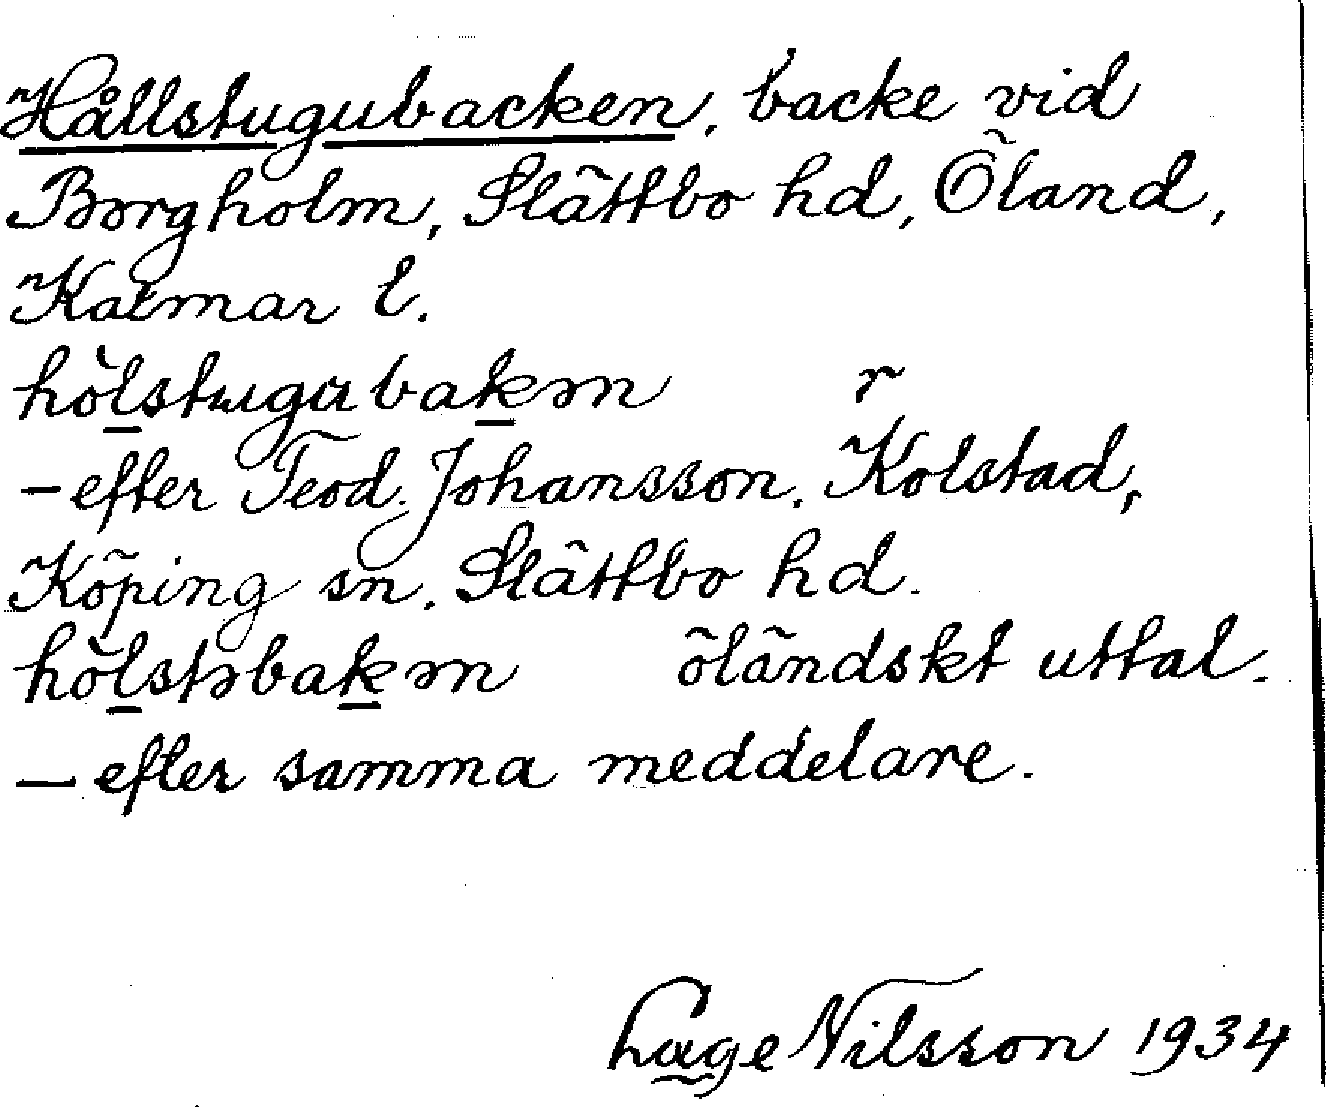 Hållstugubacken, backe vid
Borgholm, Slättbo hd, Öland,
Kalmar l.
hòlstugubakən r
– efter Teod. Johansson, Kolstad,
Köping sn, Slättbo hd.
hòlstəbakən öländskt uttal.
– efter samma meddelare.
Hage Nilsson 1934